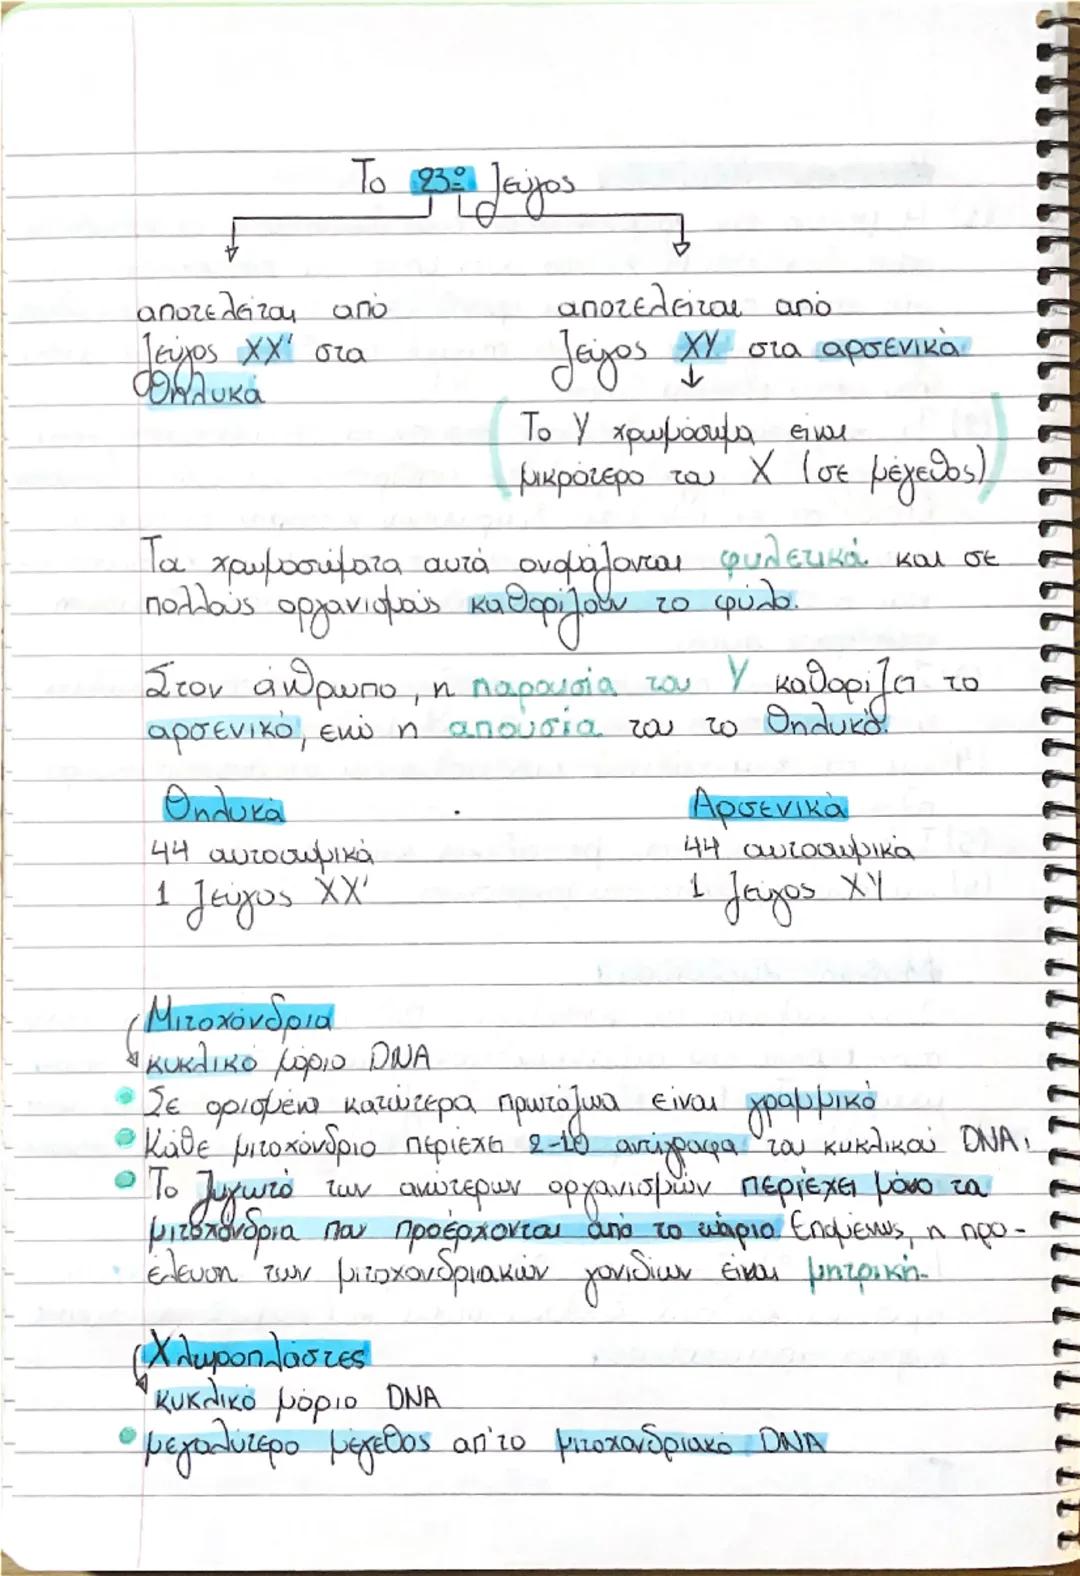 Το 23ο ζεύγος
αποτελείται από αποτελείται από
ζεύγος ΧΧ' στα ζεύγος ΧΥ στα αρσενικά
θηλυκά
Το Υ χρωμόσωμα είναι
μικρότερο του Χ (σε μέγεθος)
Τα χρωμοσώματα αυτά ονομάζονται φυλετικά και σε
πολλούς οργανισμούς καθορίζουν το φύλο.
Στον άνθρωπο, η παρουσία του Υ καθορίζει το
αρσενικό, ενώ η απουσία του το θηλυκό.
Θηλυκά Αρσενικά
44 αυτοσωμικά 44 αυτοσωμικά
1 ζεύγος ΧΧ' 1 ζεύγος ΧΥ
Μιτοχόνδρια
κυκλικό μόριο DNA
Σε ορισμένα κατώτερα πρωτόζωα είναι γραμμικό
Κάθε μιτοχόνδριο περιέχει 2-10 αντίγραφα του κυκλικού DNA.
Το ζυγωτό των ανώτερων οργανισμών περιέχει μόνο τα
μιτοχόνδρια που προέρχονται από το ωάριο. Επομένως, η προ-
έλευση των μιτοχονδριακών γονιδίων είναι μητρική.
Χλωροπλάστες
κυκλικό μόριο DNA
μεγαλύτερο μέγεθος απ'το μιτοχονδριακό DNA